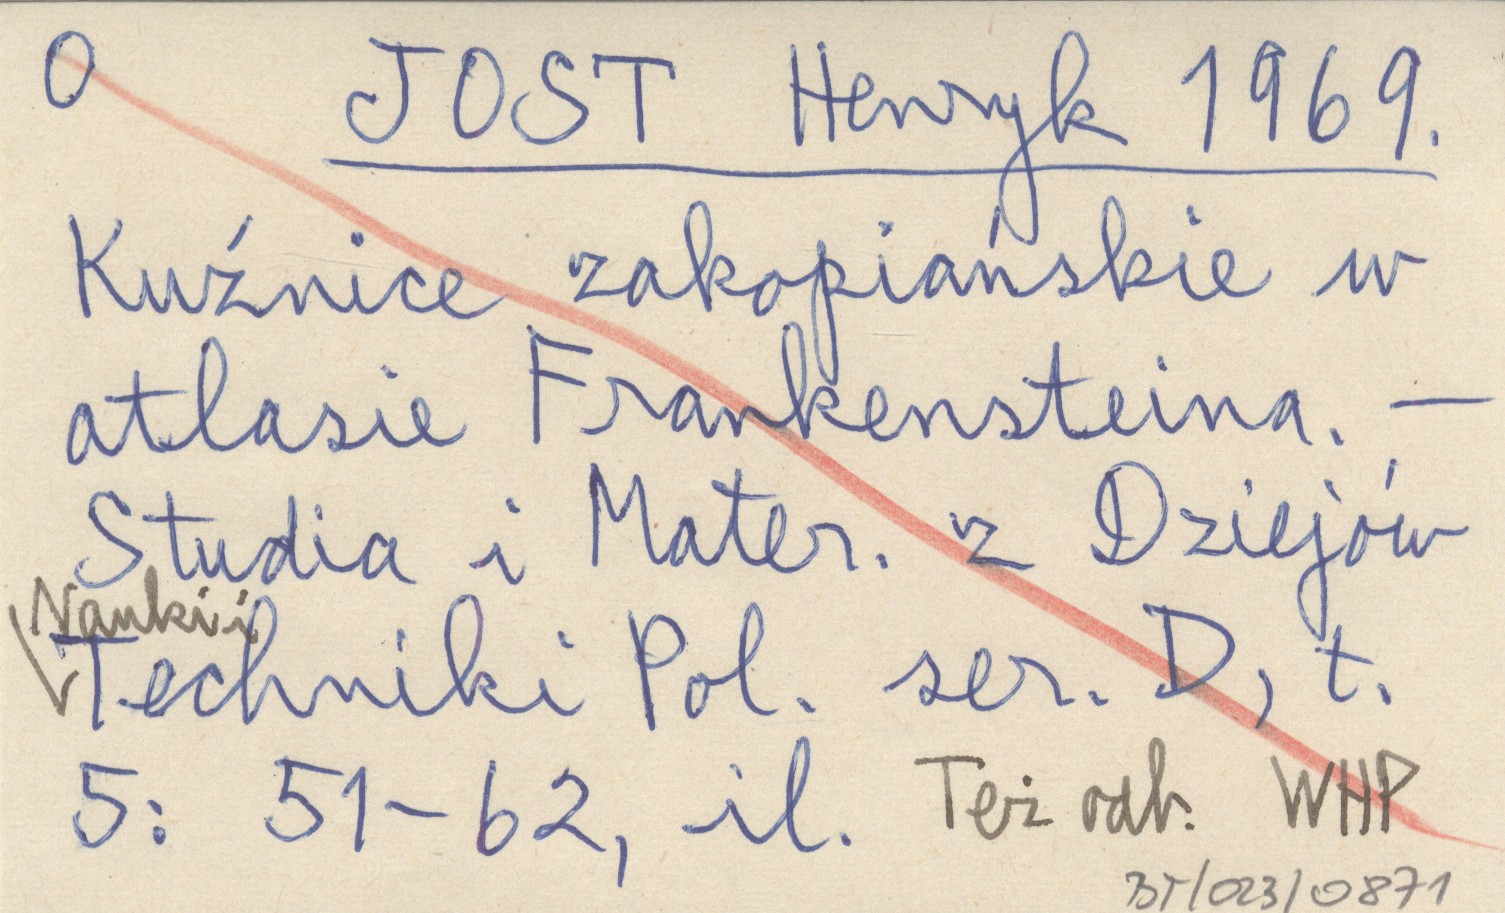 O JOST Henryk 1969.
Kuźnice zakopiańskie w
atlasie Frankensteina. —
Studia i Mater. z Dziejów
Nauki i
Techniki Pol. ser. D, t.
5: 51-62, il. Też odb. WHP
BT/023/0871